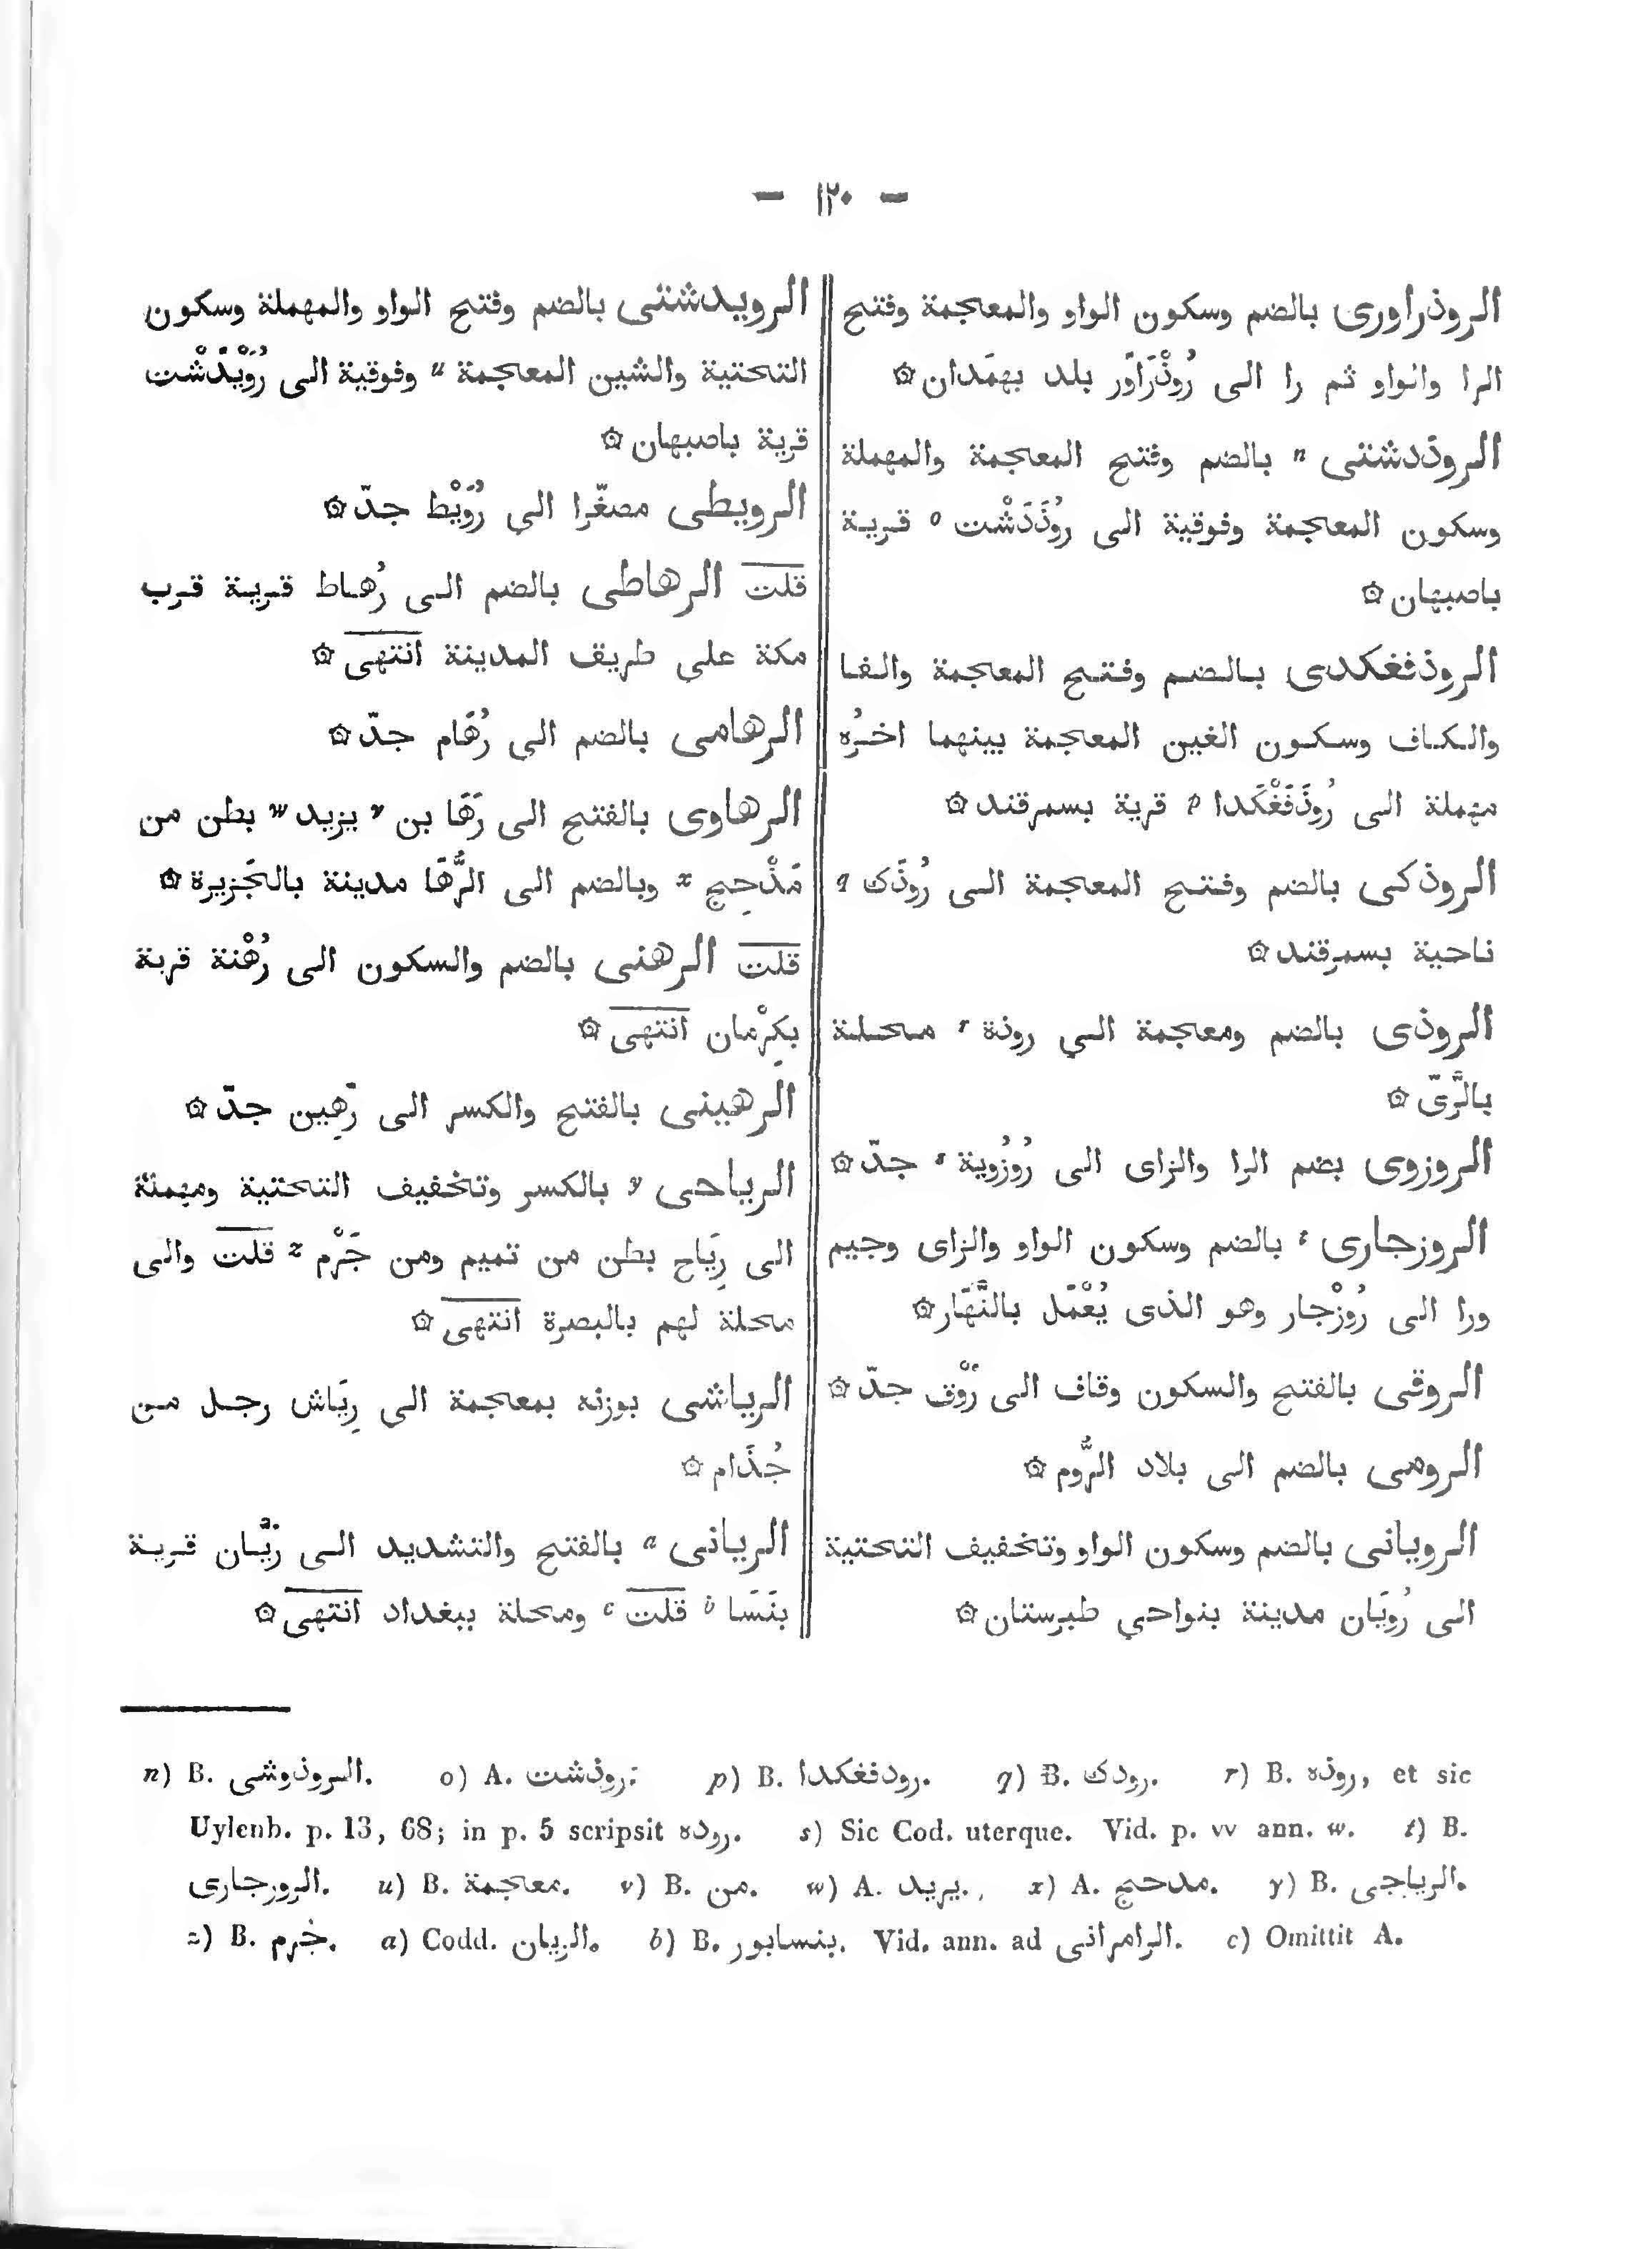 — ١٢٠ —
الروذراورى بالضم وسكون الواو والمعجمة وفتح
الرا والواو ثم را الى رُوذْرَاوَر بلد بهمَدان ۞
الروذدشتى n بالضم وفتح المعجمة والمهملة
وسكون المعجمة وفوقية الى رُوذَدَشْت o قرية
باصبهان ۞
الروذفغكدى بالضم وفتح المعجمة والفا
والكاف وسكون الغين المعجمة بينهما اخرُه
مهملة الى رُوذَفَغْكَدا p قرية بسمرقند ۞
الروذكى بالضم وفتح المعجمة الى رُوذَك q
ناحية بسمرقند ۞
الروذى بالضم ومعجمة الي روذة r محلة
بالرَّىّ ۞
الروزوى بضم الرا والزاى الى رُوزُوية s جدّ ۞
الروزجارى t بالضم وسكون الواو والزاى وجيم
ورا الى رُوزْجار وهو الذى يُعْمَل بالنَّهَار ۞
الروقى بالفتح والسكون وقاف الى رَوْق جدّ ۞
الرومى بالضم الى بلاد الرُّوم ۞
الرويانى بالضم وسكون الواو وتخفيف التحتية
الى رُويَان مدينة بنواحي طبرستان ۞
الرويدشتى بالضم وفتح الواو والمهملة وسكون
التحتية والشين المعجمة u وفوقية الى رُوَيْدَشْت
قرية باصبهان ۞
الرويطى مصغّرا الي رُوَيْط جدّ ۞
قلت الرهاطى بالضم الى رُهاط قرية قرب
مكة علي طريق المدينة انتهى ۞
الرهامى بالضم الي رُهَام جدّ ۞
الرهاوى بالفتح الى رَهَا بن v يزيد w بطن من
مَذْحِج x وبالضم الى الرُّهَا مدينة بالجَزيرة ۞
قلت الرهنى بالضم والسكون الى رُهْنة قرية
بكِرْمان انتهى ۞
الرهينى بالفتح والكسر الى رَهِين جدّ ۞
الرياحى y بالكسر وتخفيف التحتية ومهملة
الى رِيَاح بطن من تميم ومن جَرْم z قلت والى
محلة لهم بالبصرة انتهى ۞
الرياشى بوزنه بمعجمة الى رِيَاش رجل من
جُذَام ۞
الريانى a بالفتح والتشديد الى رَيَّان قرية
بنَسَا b قلت c ومحلة ببغداد انتهى ۞
n) B. الروذوشى. o) A. روذشت. p) B. رودفغكدا. q) B. رودك. r) B. روذه, et sic
Uylenb. p. 13, 68; in p. 5 scripsit روده. s) Sic Cod. uterque. Vid. p. ٧٧ ann. w. t) B.
الرورجارى. u) B. معجمة. v) B. من. w) A. يريد. x) A. مدحج. y) B. الرياجى.
z) B. خرم. a) Codd. الريان. b) B. بنسابور. Vid. ann. ad الرامرانى. c) Omittit A.